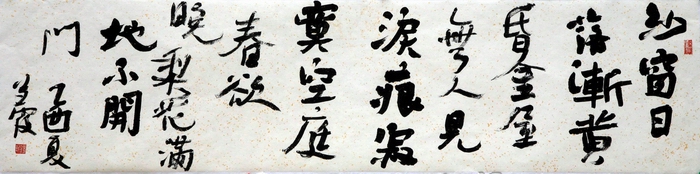 紗窗日
落漸黄
昏金屋
無人見
淚痕寂
寞空庭
春欲
晚梨花滿
地不開
門
丁酉夏